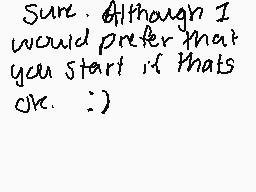 Sure. Although I
would prefer that
you start if thats
ok. :)